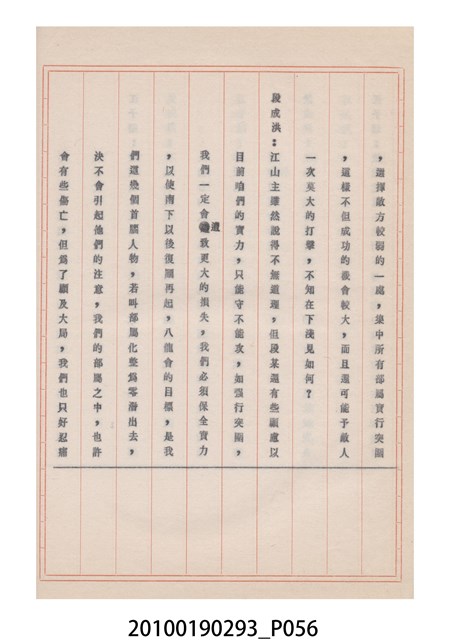 ，選擇敵方較弱的一處，集中所有部屬實行突圍
，這樣不但成功的機會較大，而且還可能予敵人
一次莫大的打擊，不知在下淺見如何？
段成洪：江山主雖然說得不無道理，但段某還有些顧慮以
目前咱們的實力，只能守不能攻，如强行突圍，
我們一定會遭致更大的損失，我們必須保全實力
，以使南下以後復圖再起，八龍會的目標，是我
們這幾個首腦人物，若叫部屬化整爲零潛出去，
決不會引起他們的注意，我們的部屬之中，也許
會有些傷亡，但爲了顧及大局，我們也只好忍痛
20100190293_P056